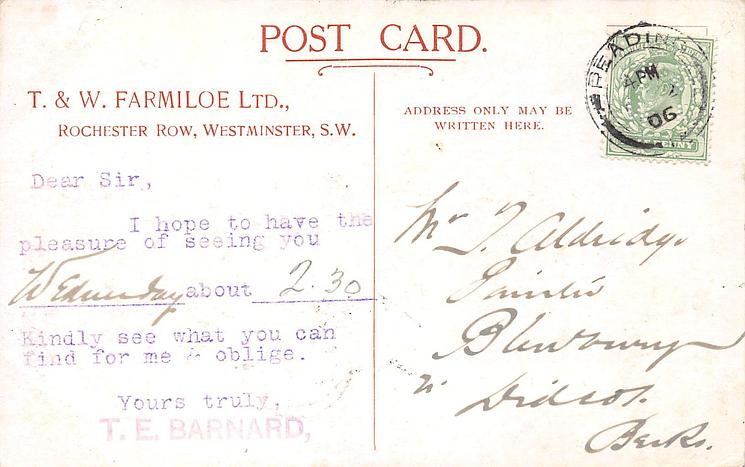 POST CARD.
T. & W. FARMILOE LTD.,
ROCHESTER ROW, WESTMINSTER, S.W.
ADDRESS ONLY MAY BE
WRITTEN HERE.
READING
4 PM
06
Dear Sir,
I hope to have the
pleasure of seeing you
Wednesday about 2.30
Kindly see what you can
find for me & oblige.
Yours truly,
T. E. BARNARD,
Mr T. Aldridge
Painter
Blewbury
Nr Didcot.
Berks.